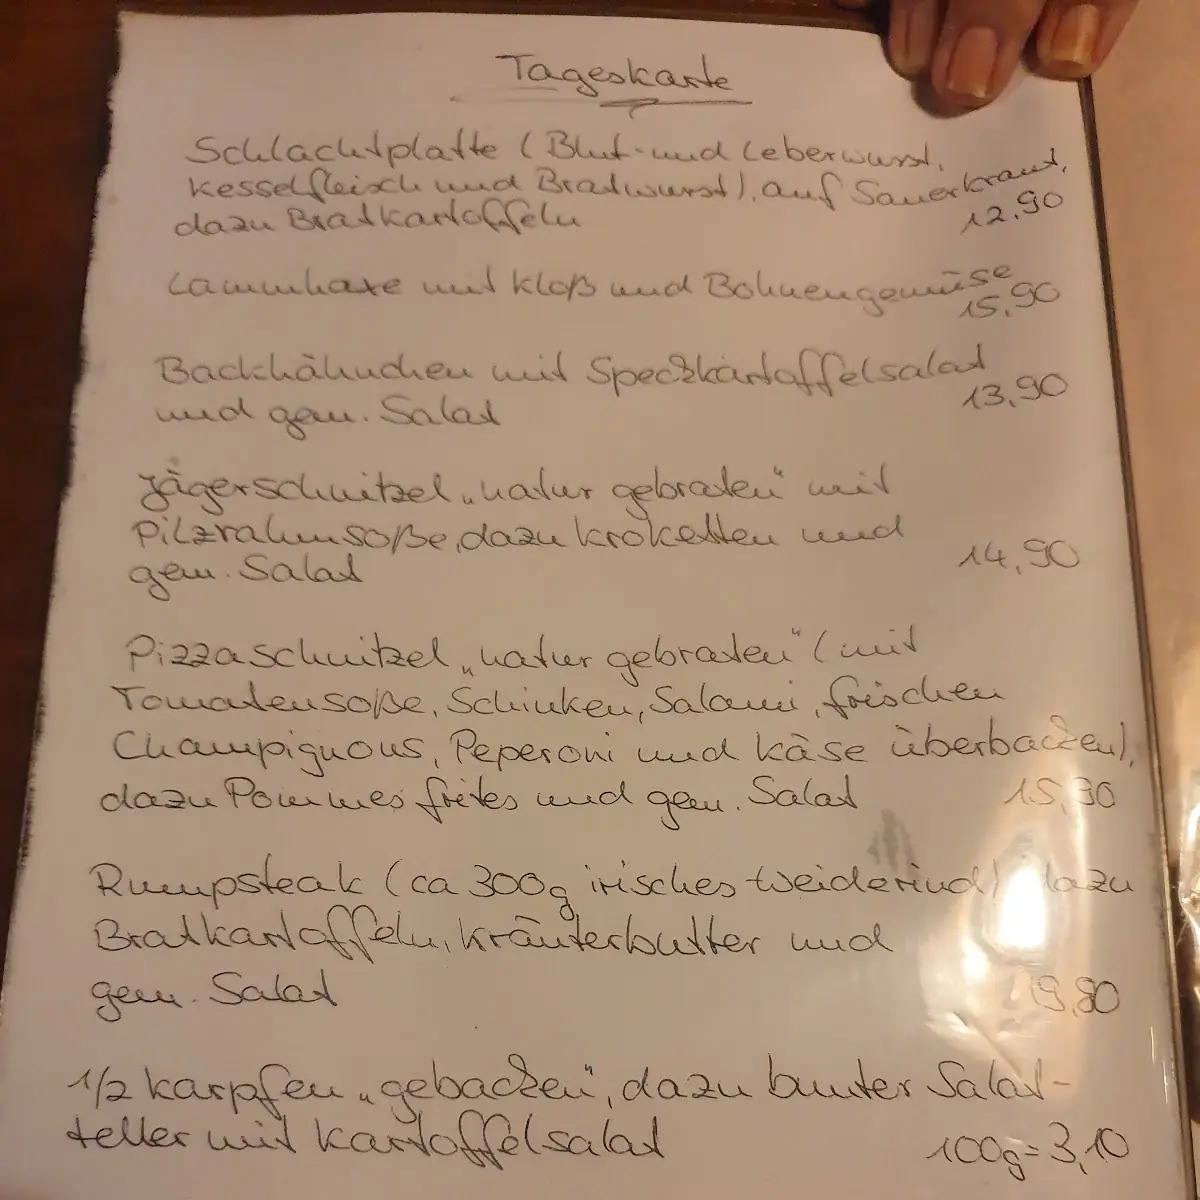 Tageskarte
Schlachtplatte (Blut- und Leberwurst,
Kesselfleisch und Bratwurst), auf Sauerkraut,
dazu Bratkartoffeln 12,90
Lammhaxe mit Kloß und Bohnengemüse
15,90
Backhähnchen mit Speckkartoffelsalat
und gem. Salat 13,90
Jägerschnitzel „natur gebraten" mit
Pilzrahmsoße, dazu Kroketten und
gem. Salat 14,90
Pizzaschnitzel „natur gebraten" (mit
Tomatensoße, Schinken, Salami, frischen
Champignons, Peperoni und Käse überbacken),
dazu Pommes frites und gem. Salat 15,90
Rumpsteak (ca 300g irisches Weiderind) dazu
Bratkartoffeln, Kräuterbutter und
gem. Salat
1/2 Karpfen „gebacken", dazu bunter Salat-
teller mit Kartoffelsalat 100g = 3,10